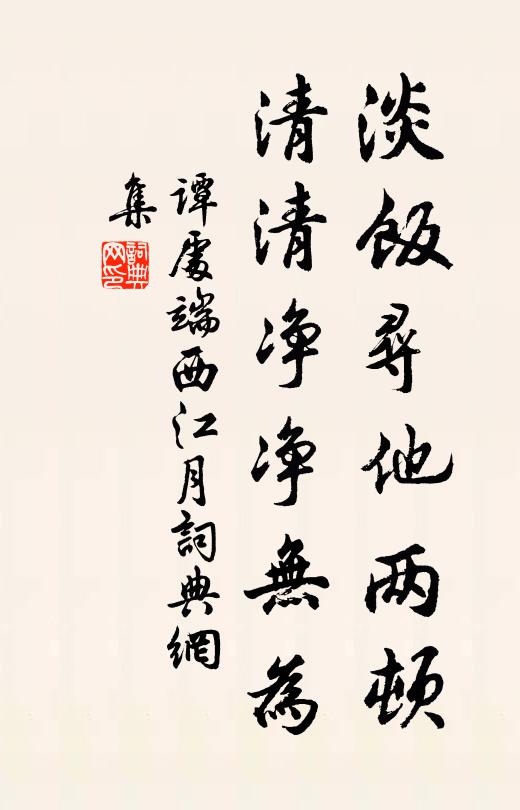 淡飯尋他两頓
清清净净無為
譚處端西江月詞典網
集
詞典
网印